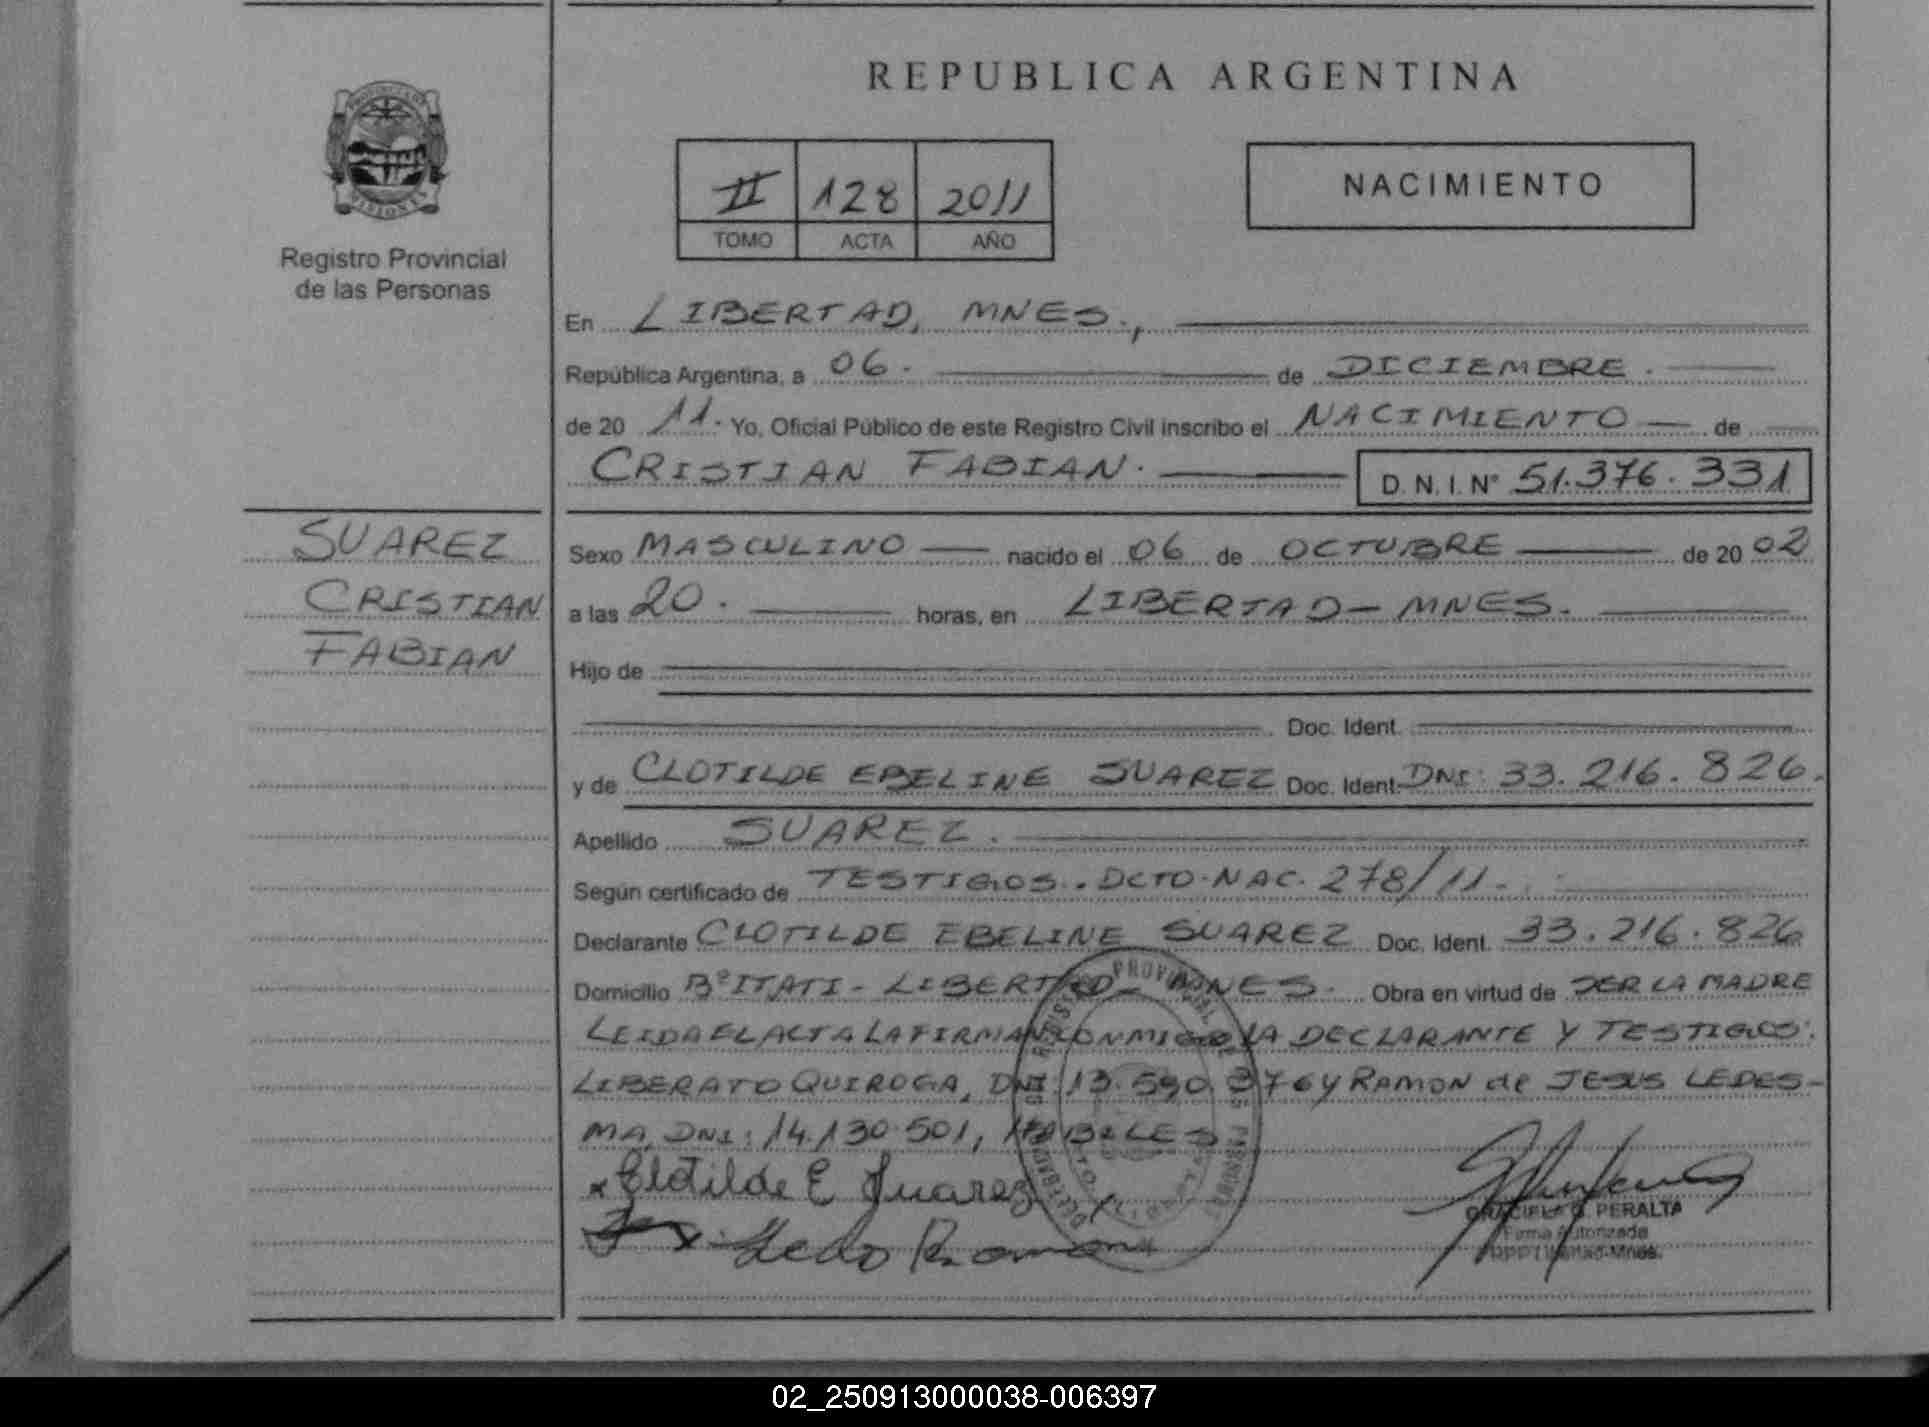 REPUBLICA ARGENTINA
II 128 2011
TOMO ACTA AÑO
NACIMIENTO
Registro Provincial
de las Personas
En LIBERTAD, MNES.,
República Argentina, a 06. de DICIEMBRE.
de 20 11. Yo, Oficial Público de este Registro Civil inscribo el NACIMIENTO de
CRISTIAN FABIAN. D.N.I.N° 51.376.331
SUAREZ
CRISTIAN
FABIAN
Sexo MASCULINO nacido el 06 de OCTUBRE de 20 02
a las 20. horas, en LIBERTAD - MNES.
Hijo de
Doc. Ident.
y de CLOTILDE EBELINE SUAREZ Doc. Ident. DNI: 33.216.826.
Apellido SUAREZ.
Según certificado de TESTIGOS. DCTO. NAC. 278/11.
Declarante CLOTILDE EBELINE SUAREZ Doc. Ident. 33.216.826
Domicilio B° ITATI - LIBERTAD - MNES. Obra en virtud de SER LA MADRE
LEIDA EL ACTA LA FIRMAN CONMIGO LA DECLARANTE Y TESTIGOS:
LIBERATO QUIROGA, DNI: 13.590.376 y RAMON de JESUS LEDES-
MA, DNI: 14.130.501, HABILES
x Clotilde E Suarez
x Ramon
GRACIELA PERALTA
Firma Autorizada
02_250913000038-006397